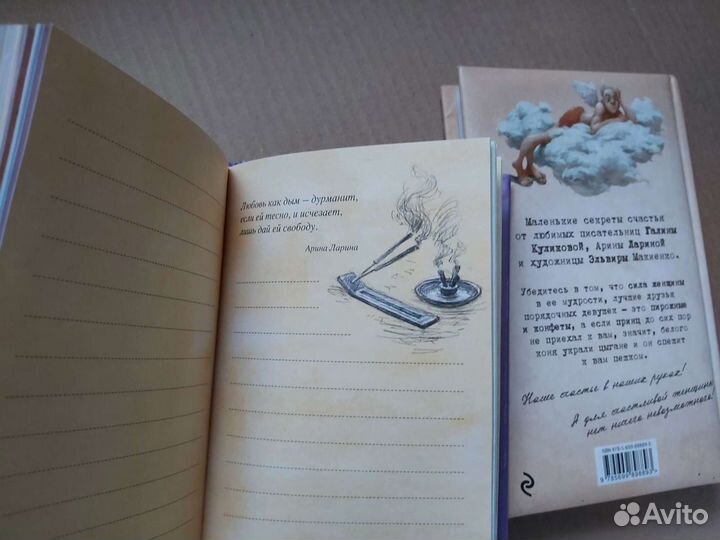 Любовь как дым – дурманит,
если ей тесно, и исчезает,
лишь дай ей свободу.
Арина Ларина
Маленькие секреты счастья
от любимых писательниц Галины
Куликовой, Арины Лариной
и художницы Эльвиры Макиенко.
Убедитесь в том, что сила женщины
в ее мудрости, лучшие друзья
порядочных девушек – это пирожные
и конфеты, а если принц до сих пор
не приехал к вам, значит, белого
коня украли цыгане и он спешит
к вам пешком.
Наше счастье в наших руках!
А для счастливой женщины
нет ничего невозможного!
9 785699 896893
Avito